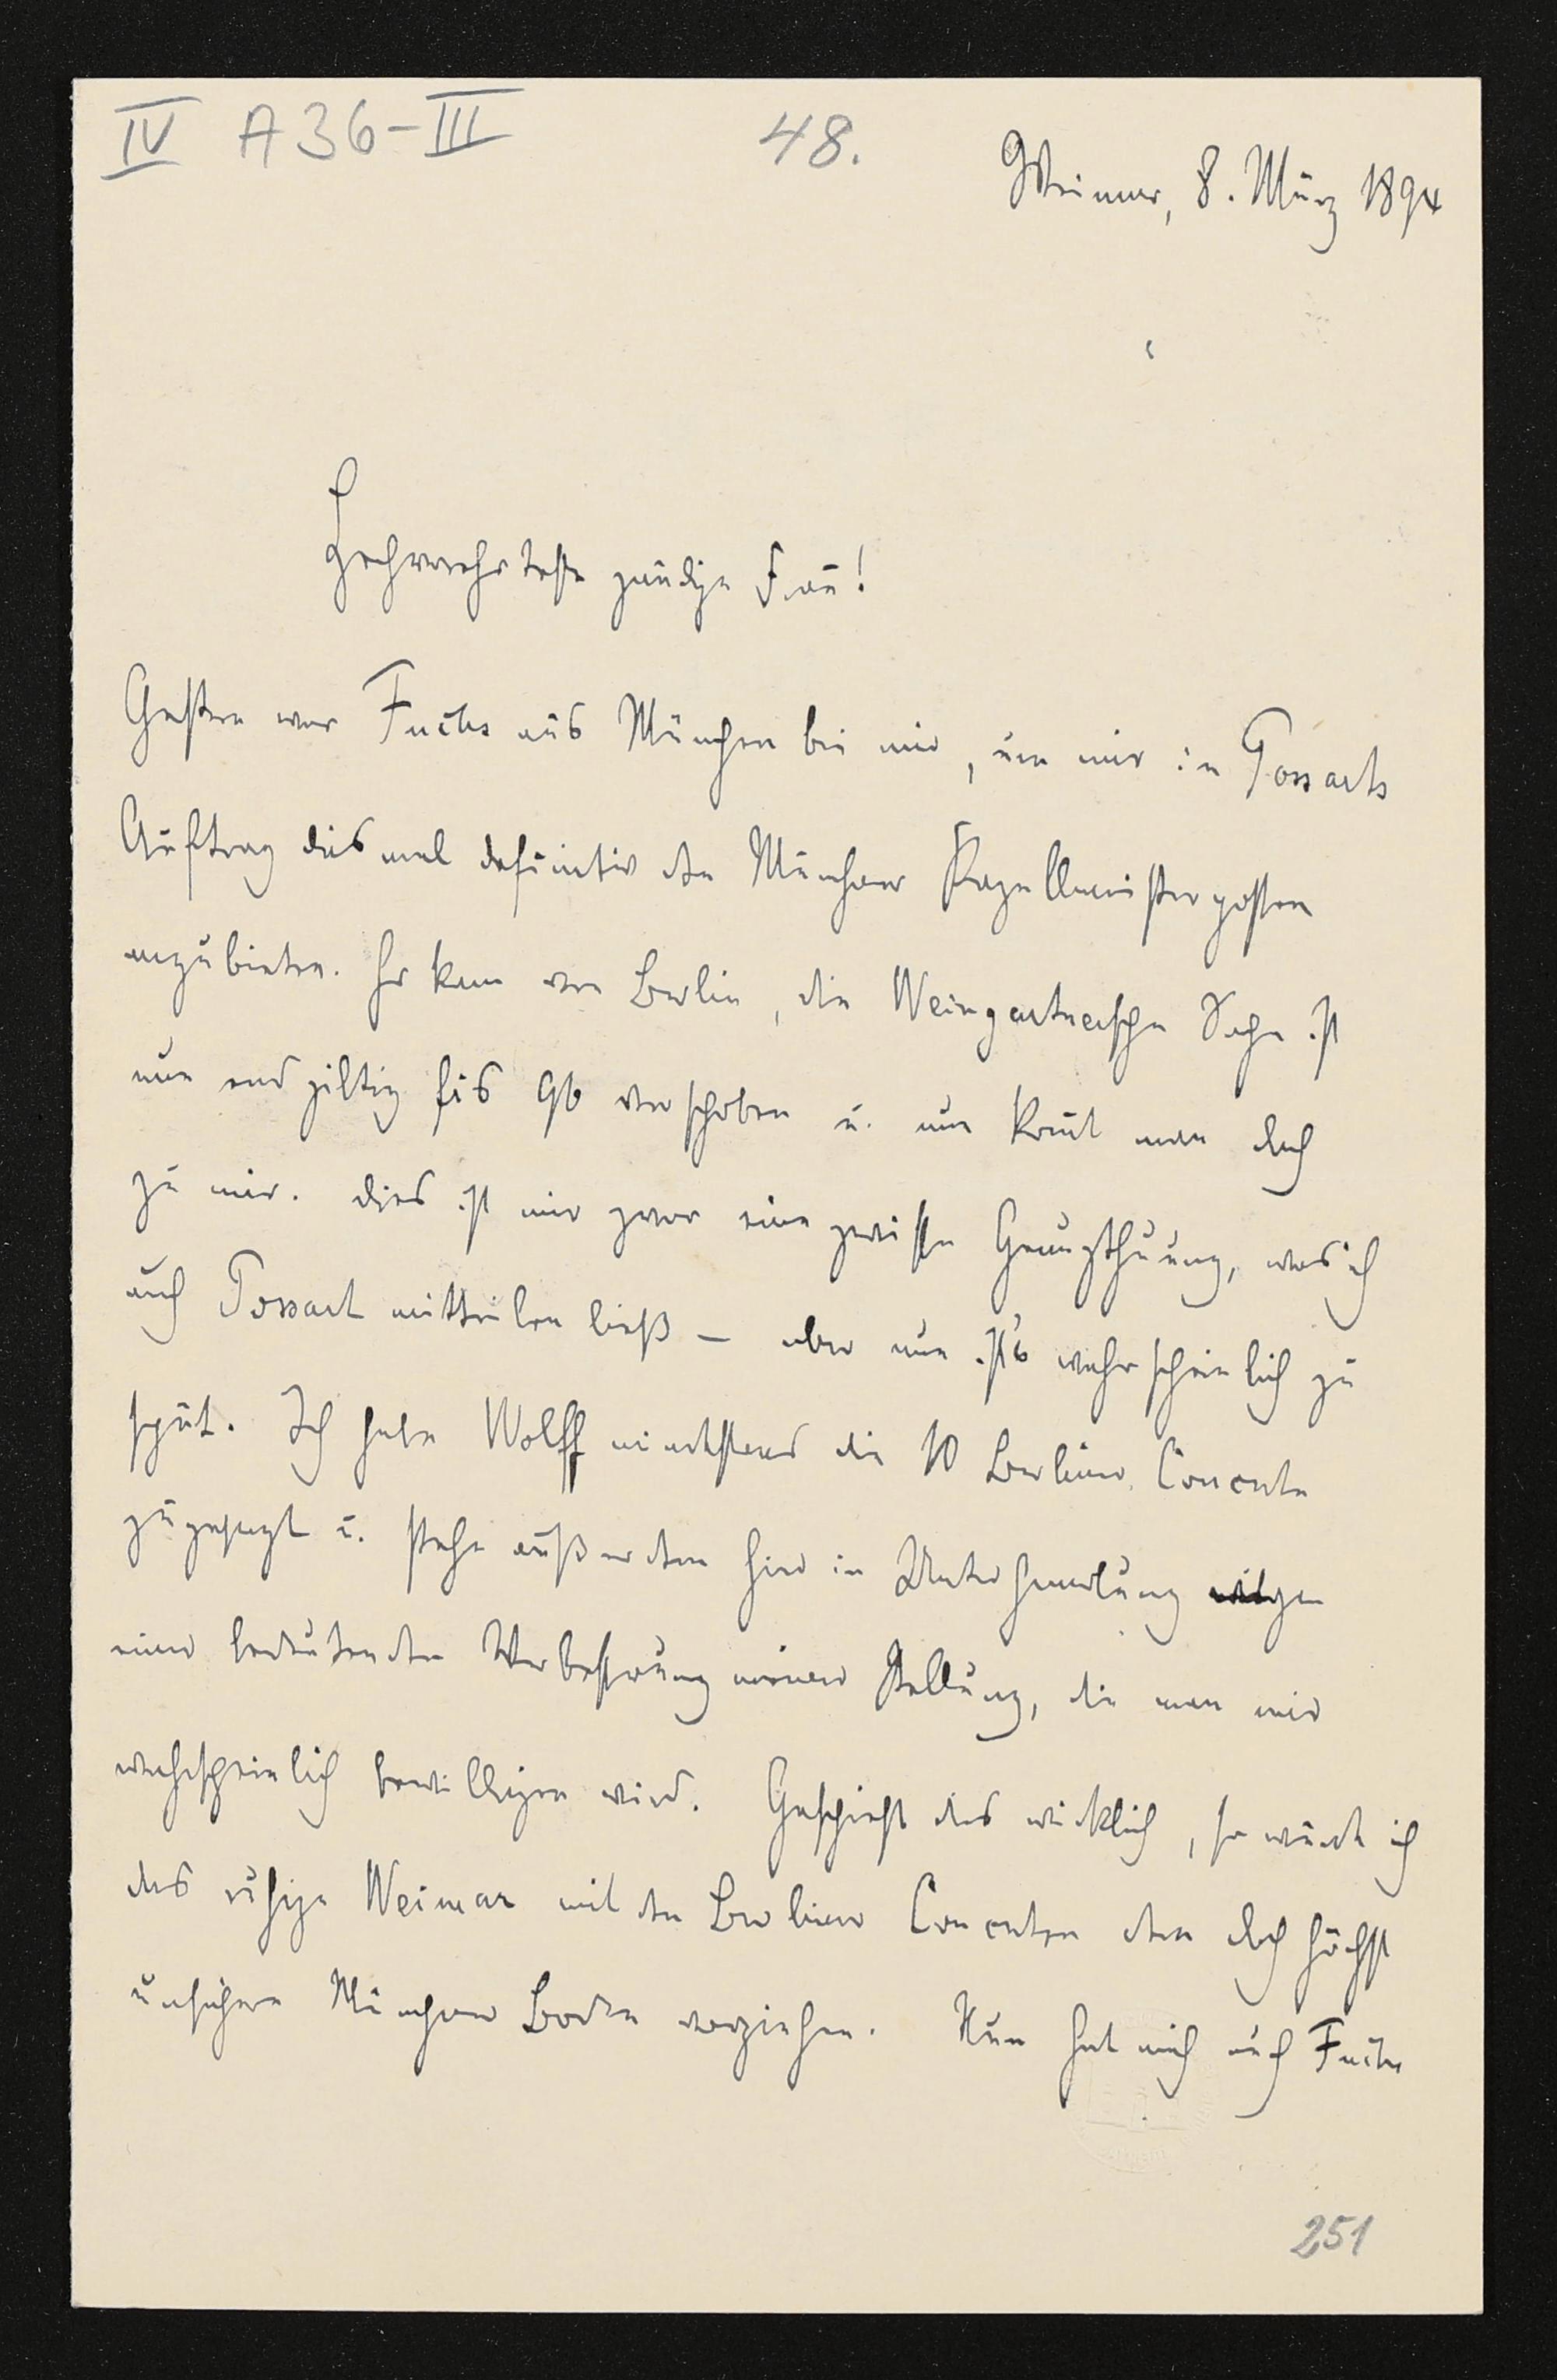 IV A 36-III 48.
Weimar, 8. März 1894
Hochverehrteste gnädige Frau!
Gestern war Fuchs aus München bei mir, um mir in Possarts
Auftrag diesmal definitiv den Münchner Kapellmeisterposten
anzubieten. Er kam von Berlin, die Weingartnersche Sache ist
nun endgiltig bis 96 verschoben u. nun kom̄t man doch
zu mir. Dies ist mir zwar eine gewisse Genugthuung, was ich
auch Possart mitteilen ließ – aber nun ist's wahrscheinlich zu
spät. Ich habe Wolff mindestens die 10 Berliner Concerte
zugesagt u. stehe außerdem hier in Unterhandlung wegen
einer bedeutenden Verbesserung meiner Stellung, die man mir
wahrscheinlich bewilligen wird. Geschieht das wirklich, so würde ich
das ruhige Weimar mit den Berliner Concerten dem doch höchst
unsichern Münchner Boden vorziehen. Nun hat mich auch Fuchs
251